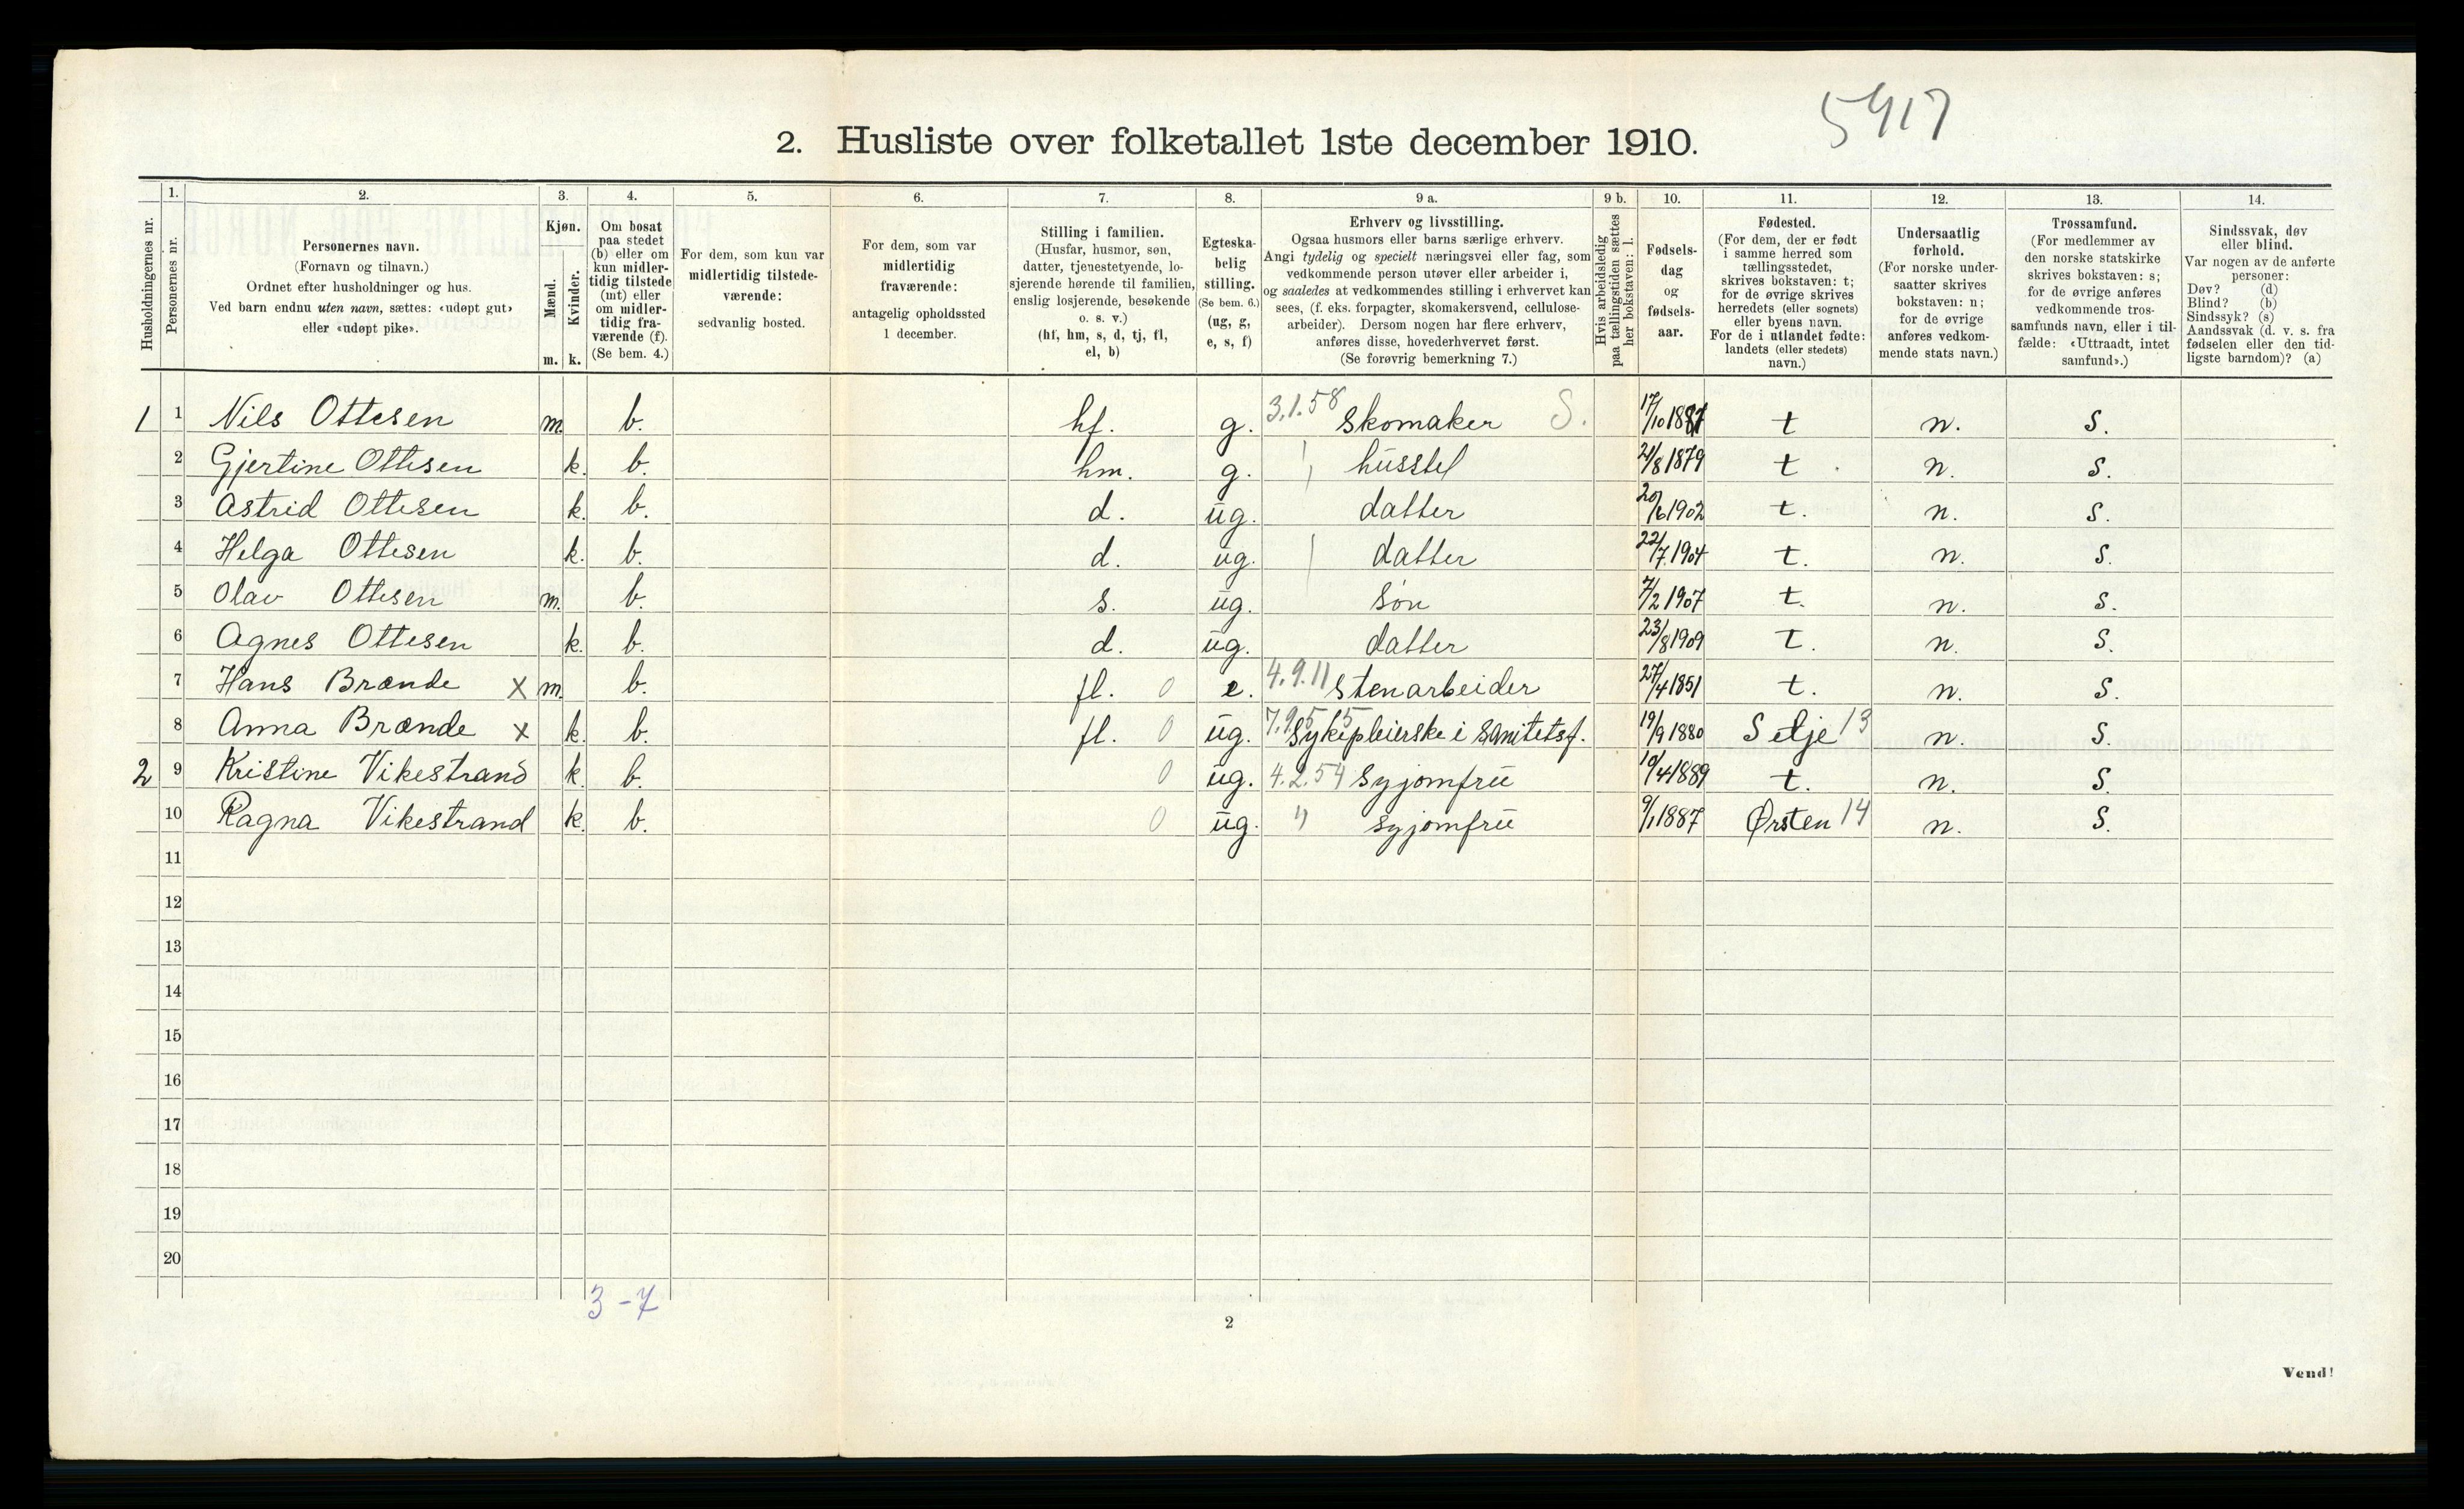 5417
2. Husliste over folketallet 1ste december 1910.
Husholdningernes nr.
1.
Personernes nr.
2.
Personernes navn.
(Fornavn og tilnavn.)
Ordnet efter husholdninger og hus.
Ved barn endnu uten navn, sættes: «udøpt gut»
eller «udøpt pike».
3.
Kjøn.
Mænd.
Kvinder.
m. k.
4.
Om bosat
paa stedet
(b) eller om
kun midler-
tidig tilstede
(mt) eller
om midler-
tidig fra-
værende (f).
(Se bem. 4.)
5.
For dem, som kun var
midlertidig tilstede-
værende:
sedvanlig bosted.
6.
For dem, som var
midlertidig
fraværende:
antagelig opholdssted
1 december.
7.
Stilling i familien.
(Husfar, husmor, søn,
datter, tjenestetyende, lo-
sjerende hørende til familien,
enslig losjerende, besøkende
o. s. v.)
(hf, hm, s, d, tj, fl,
el, b)
8.
Egteska-
belig
stilling.
(Se bem. 6.)
(ug, g,
e, s, f)
9 a.
Erhverv og livsstilling.
Ogsaa husmors eller barns særlige erhverv.
Angi tydelig og specielt næringsvei eller fag, som
vedkommende person utøver eller arbeider i,
og saaledes at vedkommendes stilling i erhvervet kan
sees, (f. eks. forpagter, skomakersvend, cellulose-
arbeider). Dersom nogen har flere erhverv,
anføres disse, hovederhvervet først.
(Se forøvrig bemerkning 7.)
9 b.
Hvis arbeidsledig
paa tællingstiden sættes
her bokstaven: l.
10.
Fødsels-
dag
og
fødsels-
aar.
11.
Fødested.
(For dem, der er født
i samme herred som
tællingsstedet,
skrives bokstaven: t;
for de øvrige skrives
herredets (eller sognets)
eller byens navn.
For de i utlandet fødte:
landets (eller stedets)
navn.)
12.
Undersaatlig
forhold.
(For norske under-
saatter skrives
bokstaven: n;
for de øvrige
anføres vedkom-
mende stats navn.)
13.
Trossamfund.
(For medlemmer av
den norske statskirke
skrives bokstaven: s;
for de øvrige anføres
vedkommende tros-
samfunds navn, eller i til-
fælde: «Uttraadt, intet
samfund».)
14.
Sindssvak, døv
eller blind.
Var nogen av de anførte
personer:
Døv? (d)
Blind? (b)
Sindssyk? (s)
Aandssvak (d. v. s. fra
fødselen eller den tid-
ligste barndom)? (a)
1 1 Nils Ottesen m. b. hf. g. 3.1.58 skomaker S. 17/10 1887 t n. S.
2 Gjertine Ottesen k. b. hm. g. husstel 21/8 1879 t n. S.
3 Astrid Ottesen k. b. d. ug. datter 20/6 1902 t. n. S.
4 Helga Ottesen k. b. d. ug. datter 22/7 1904 t. n. S.
5 Olav Ottesen m. b. s. ug. søn 7/2 1907 t. n. S.
6 Agnes Ottesen k. b. d. ug. datter 23/8 1909 t. n. S.
7 Hans Brænde x m. b. fl. 0 e. 4.9.11 stenarbeider 27/4 1851 t. n. S.
8 Anna Brænde x k. b. fl. 0 ug. 7.9.55 Sykepleierske i Sanitetsf. 19/9 1880 Selje 13 n. S.
2 9 Kristine Vikestrand k. b. 0 ug. 4.2.54 syjomfru 10/4 1889 t. n. S.
10 Ragna Vikestrand k. b. 0 ug. " syjomfru 9/1 1887 Ørsten 14 n. S.
11
12
13
14
15
16
17
18
19
20
3-7
2
Vend!